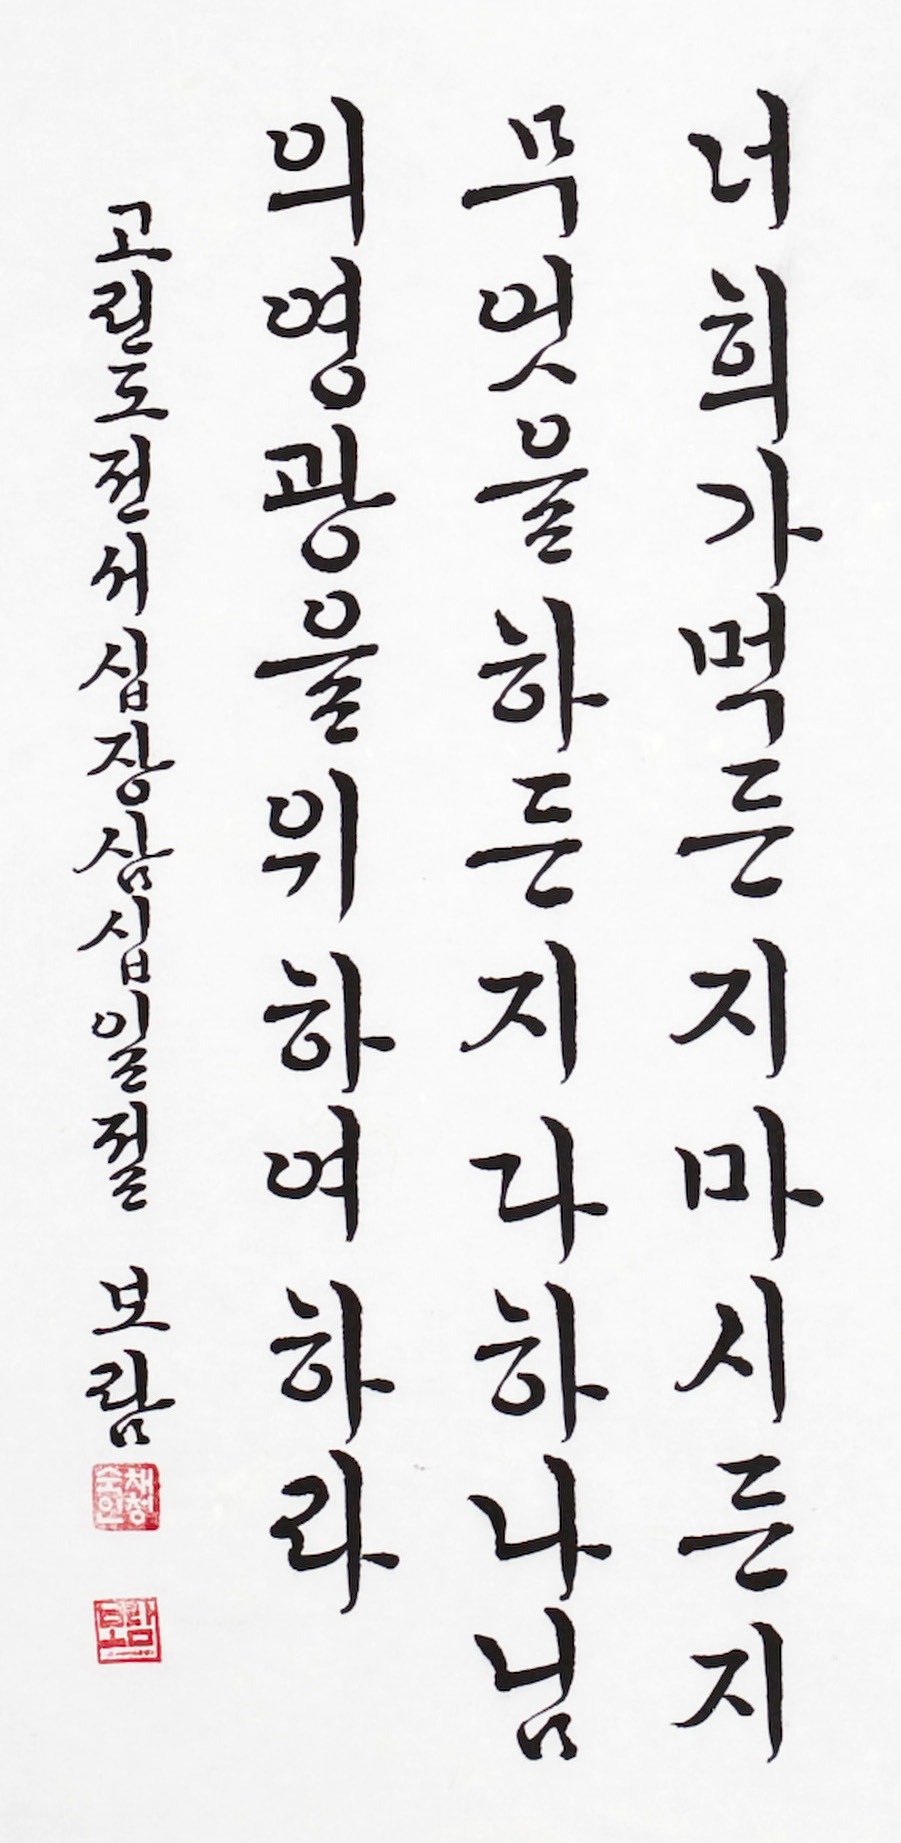 너희가먹든지마시든지
무엇을하든지다하나님
의영광을위하여하라
고린도전서십장삼십일절 보람
채청숙인
보람